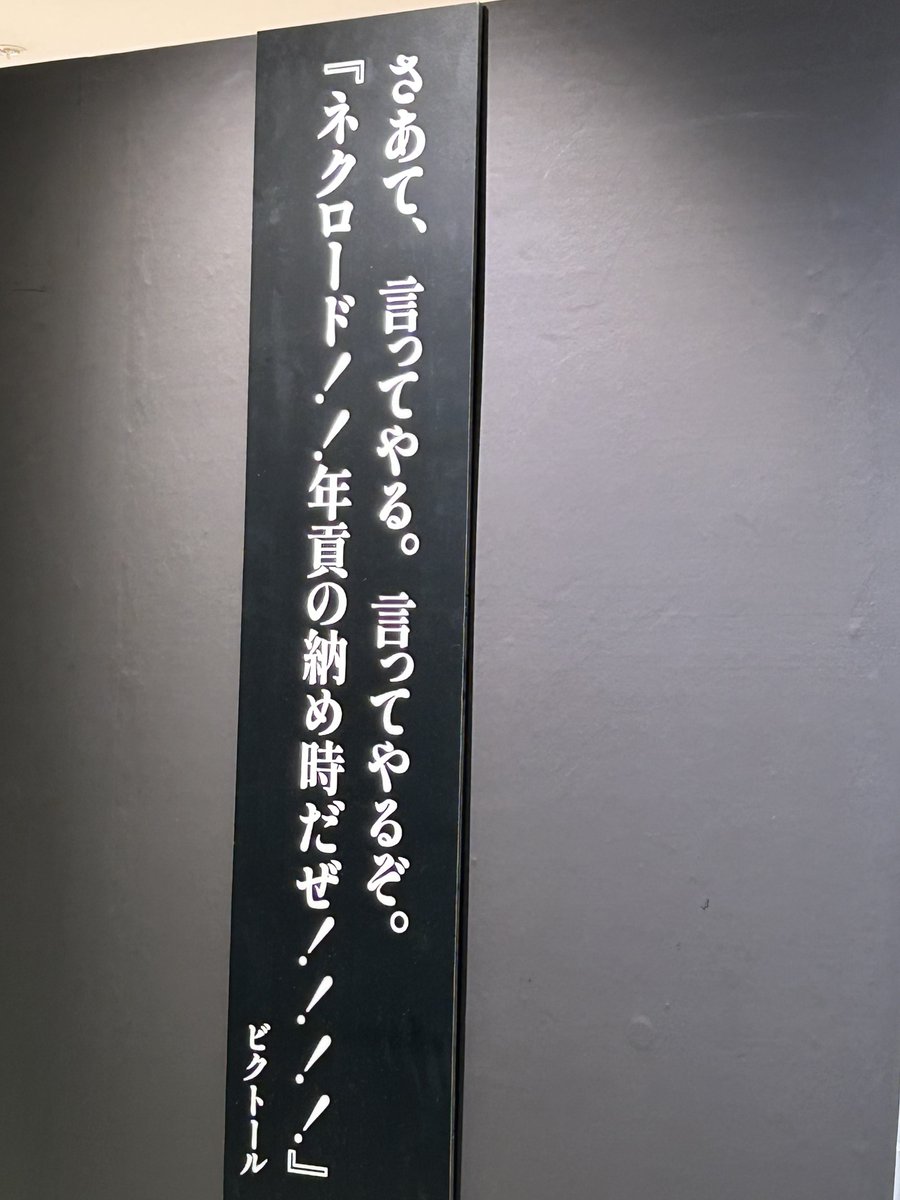 さあて、言ってやる。言ってやるぞ。
『ネクロード！！年貢の納め時だぜ！！！！』
ビクトール